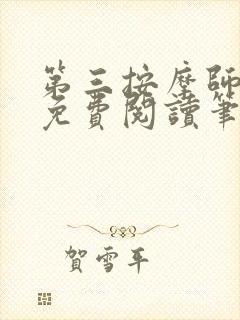 第三按摩師
免費閱讀筆
賀雪平